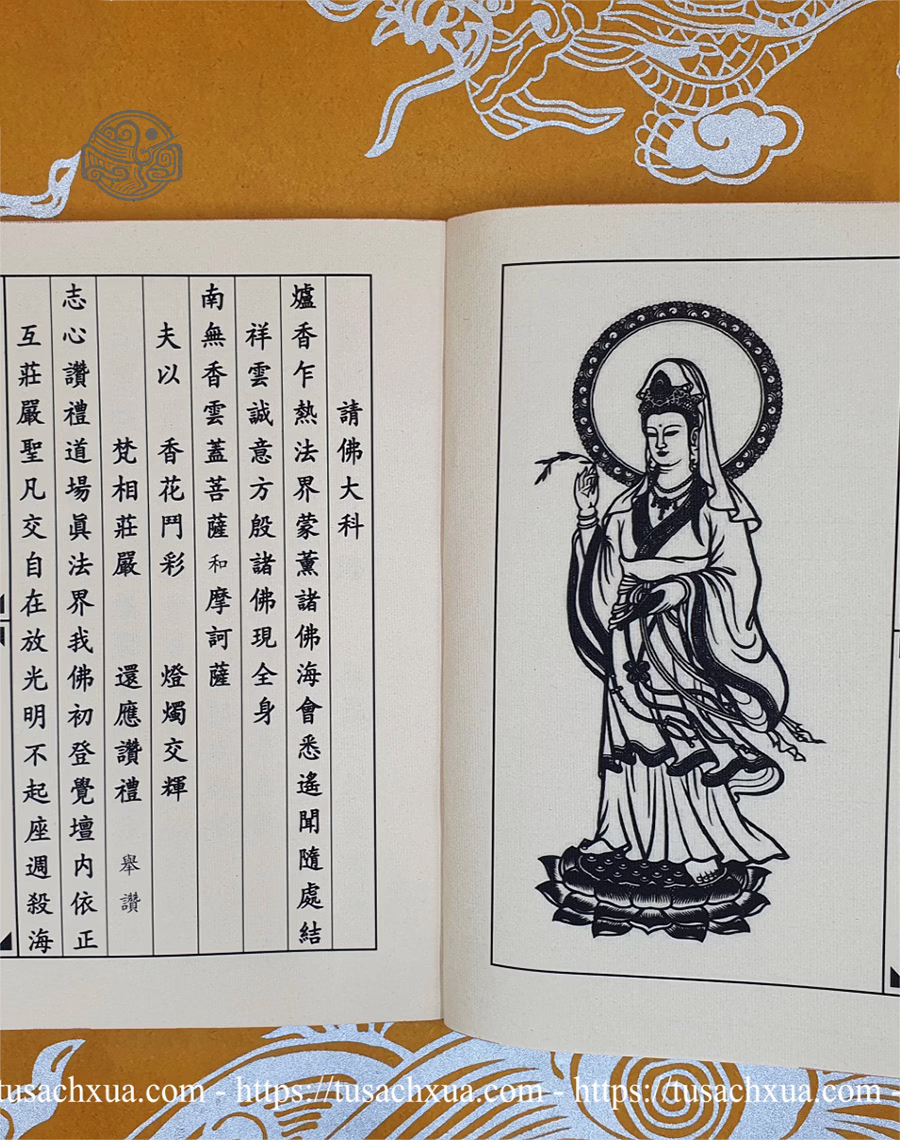 請佛大科
爐香乍熱法界蒙薰諸佛海會悉遙聞隨處結
祥雲誠意方殷諸佛現全身
南無香雲蓋菩薩和摩訶薩
夫以 香花鬥彩 燈燭交輝
梵相莊嚴 還應讚禮 舉讚
志心讚禮道場眞法界我佛初登覺壇内依正
互莊嚴聖凡交自在放光明不起座週殺海
tusachxua.com - https://tusachxua.com - https://tusachxua.com -